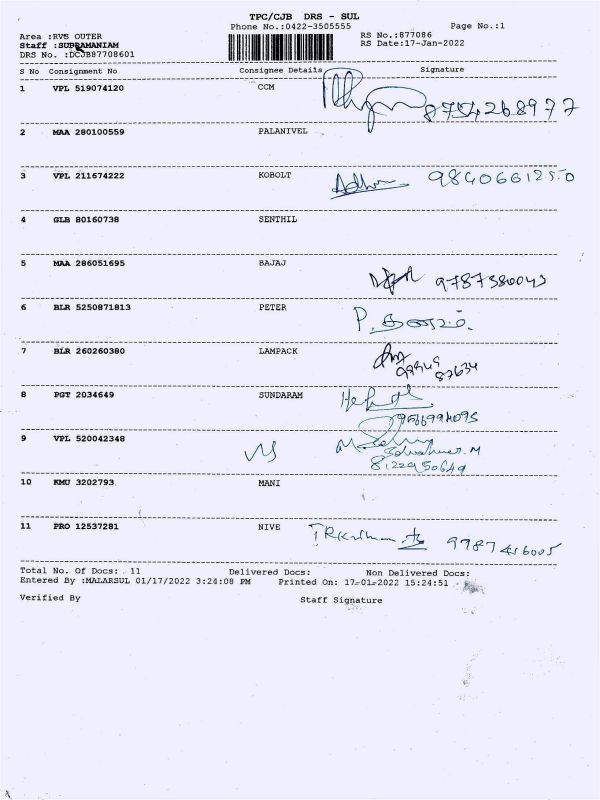 TPC/CJB DRS - SUL
Phone No.:0422-3505555
Page No.:1
Area :RVS OUTER
RS No.:877086
Staff :SUBRAMANIAM
RS Date:17-Jan-2022
DRS No. :DCJB87708601
S No Consignment No Consignee Details Signature
1 VPL 519074120 CCM
8754268977
2 MAA 280100559 PALANIVEL
3 VPL 211674222 KOBOLT
9840661250
4 GLB 80160738 SENTHIL
5 MAA 286051695 BAJAJ
9787380043
6 BLR 5250871813 PETER
7 BLR 260260380 LAMPACK
87634
8 PGT 2034649 SUNDARAM
9566994095
9 VPL 520042348
8122950649
10 KMU 3202793 MANI
11 PRO 12537281 NIVE
9787456005
Total No. Of Docs: 11 Delivered Docs: Non Delivered Docs:
Entered By :MALARSUL 01/17/2022 3:24:08 PM Printed On: 17-01-2022 15:24:51
Verified By Staff Signature